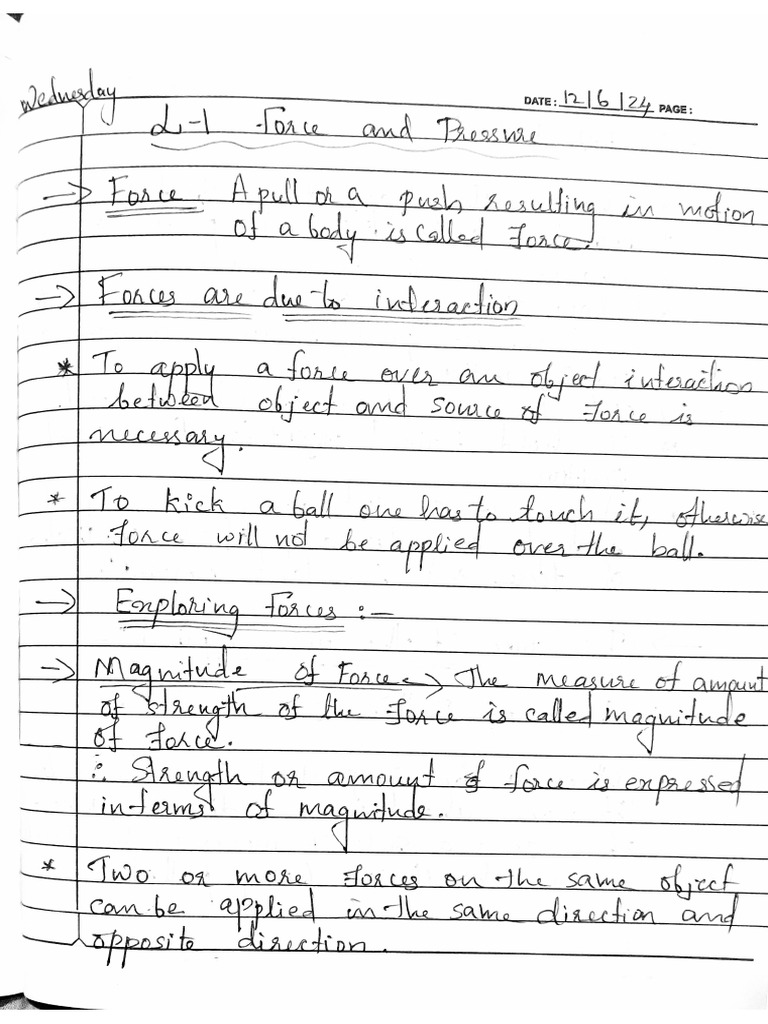 Wednesday
DATE: 12/6/24 PAGE:
L-1 Force and Pressure
→ Force A pull or a push resulting in motion
of a body is called Force.
→ Forces are due to interaction
* To apply a force over an object interaction
between object and source of Force is
necessary.
* To kick a ball one has to touch it, otherwise
force will not be applied over the ball.
→ Exploring Forces :-
→ Magnitude of Force → The measure of amount
of strength of the Force is called magnitude
of Force.
∴ Strength or amount of force is expressed
in terms of magnitude.
* Two or more Forces on the same object
can be applied in the same direction and
opposite direction.